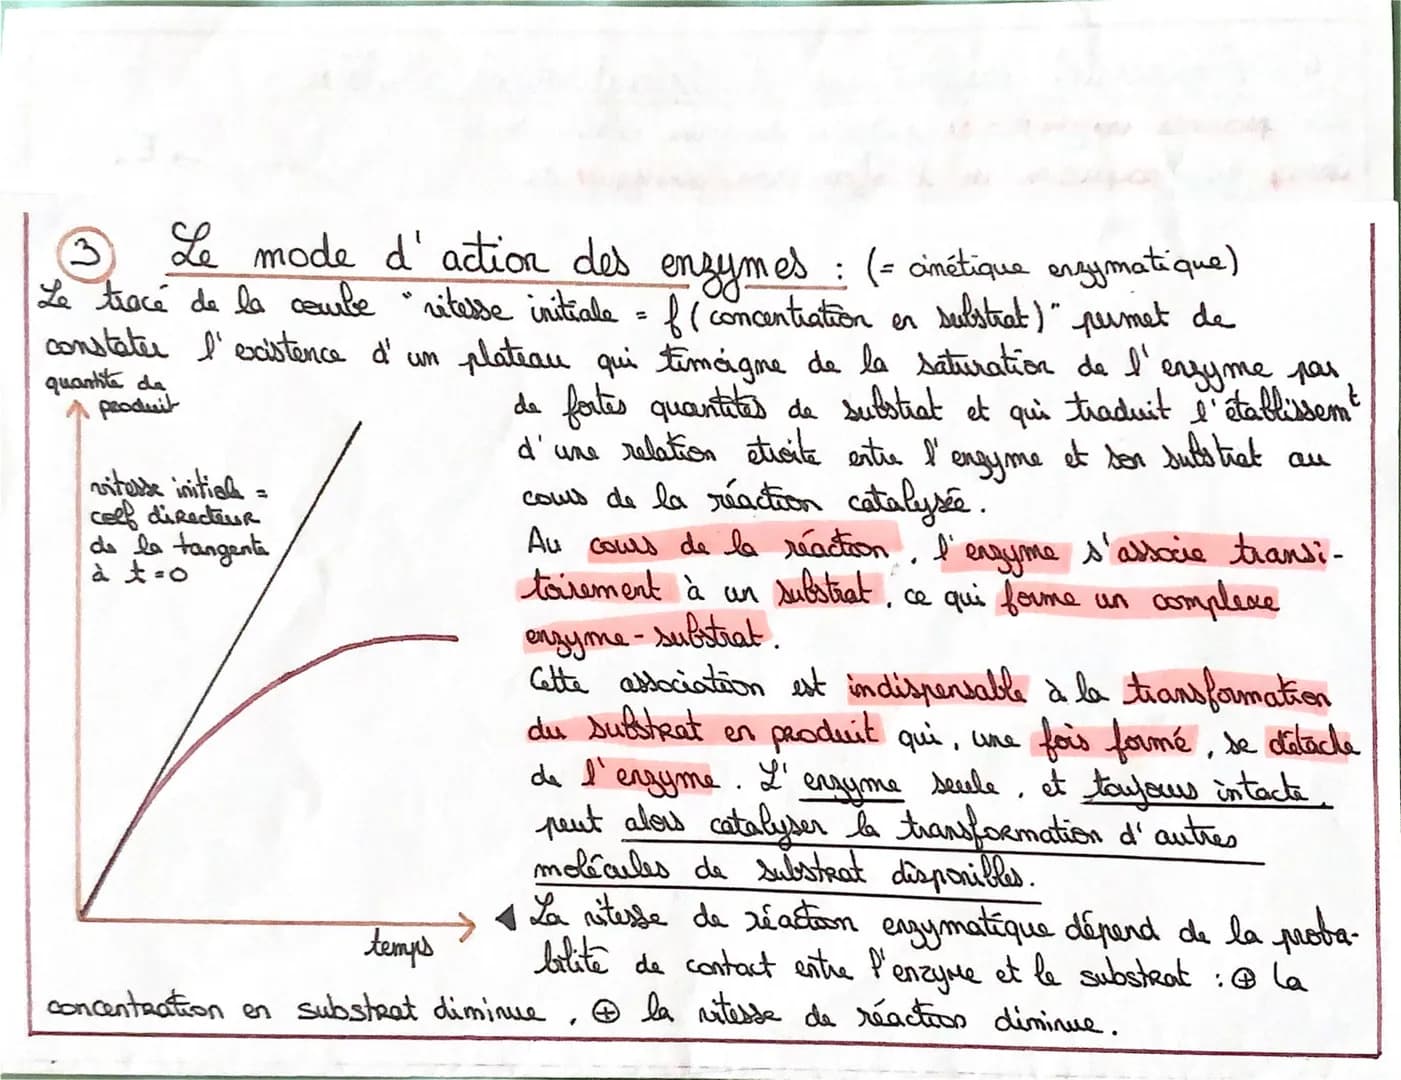 3 Le mode d'action des enzymes : (= cinétique enzymatique)
Le tracé de la courbe "vitesse initiale = f (concentration en substrat)" permet de
constater l'existence d'un plateau qui témoigne de la saturation de l'enzyme par
de fortes quantités de substrat et qui traduit l'établissemt
d'une relation étroite entre l'enzyme et son substrat au
cours de la réaction catalysée.
quantité de
produit
vitesse initiale =
coef directeur
de la tangente
à t=0
temps
Au cours de la réaction, l'enzyme s'associe transi-
toirement à un substrat, ce qui forme un complexe
enzyme-substrat.
Cette association est indispensable à la transformation
du substrat en produit qui, une fois formé, se détache
de l'enzyme. L'enzyme seule, et toujours intacte,
peut alors catalyser la transformation d'autres
molécules de substrat disponibles.
◀ La vitesse de réaction enzymatique dépend de la proba-
bilité de contact entre l'enzyme et le substrat : ⊕ la
concentration en substrat diminue, ⊕ la vitesse de réaction diminue.